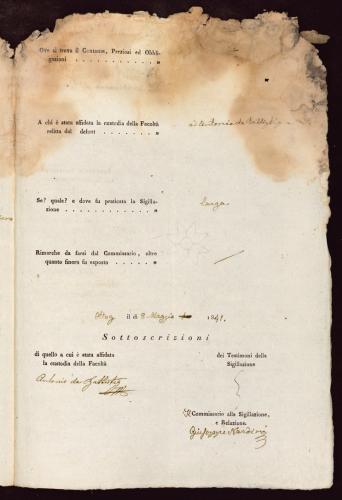 Ove si trova il Contante, Preziosi ed Obbli-
gazioni . . . . . . . . . . . .
A chi è stata affidata la custodia della Facoltà
relitta dal defont . . . . . . . . . . ad Antonio de Battisti
Se? quale? e dove fu praticata la Sigilla-
zione . . . . . . . . . . . .
Rimarche da farsi dal Commissario, oltre
quanto finora fu esposto . . . . . .
il dì 8 Maggio 1841.
Sottoscrizioni
di quello a cui è stata affidata
la custodia della Facoltà
dei Testimoni della
Sigillazione
Antonio de Battisti
Il Commissario alla Sigillazione,
e Relazione.
Giuseppe